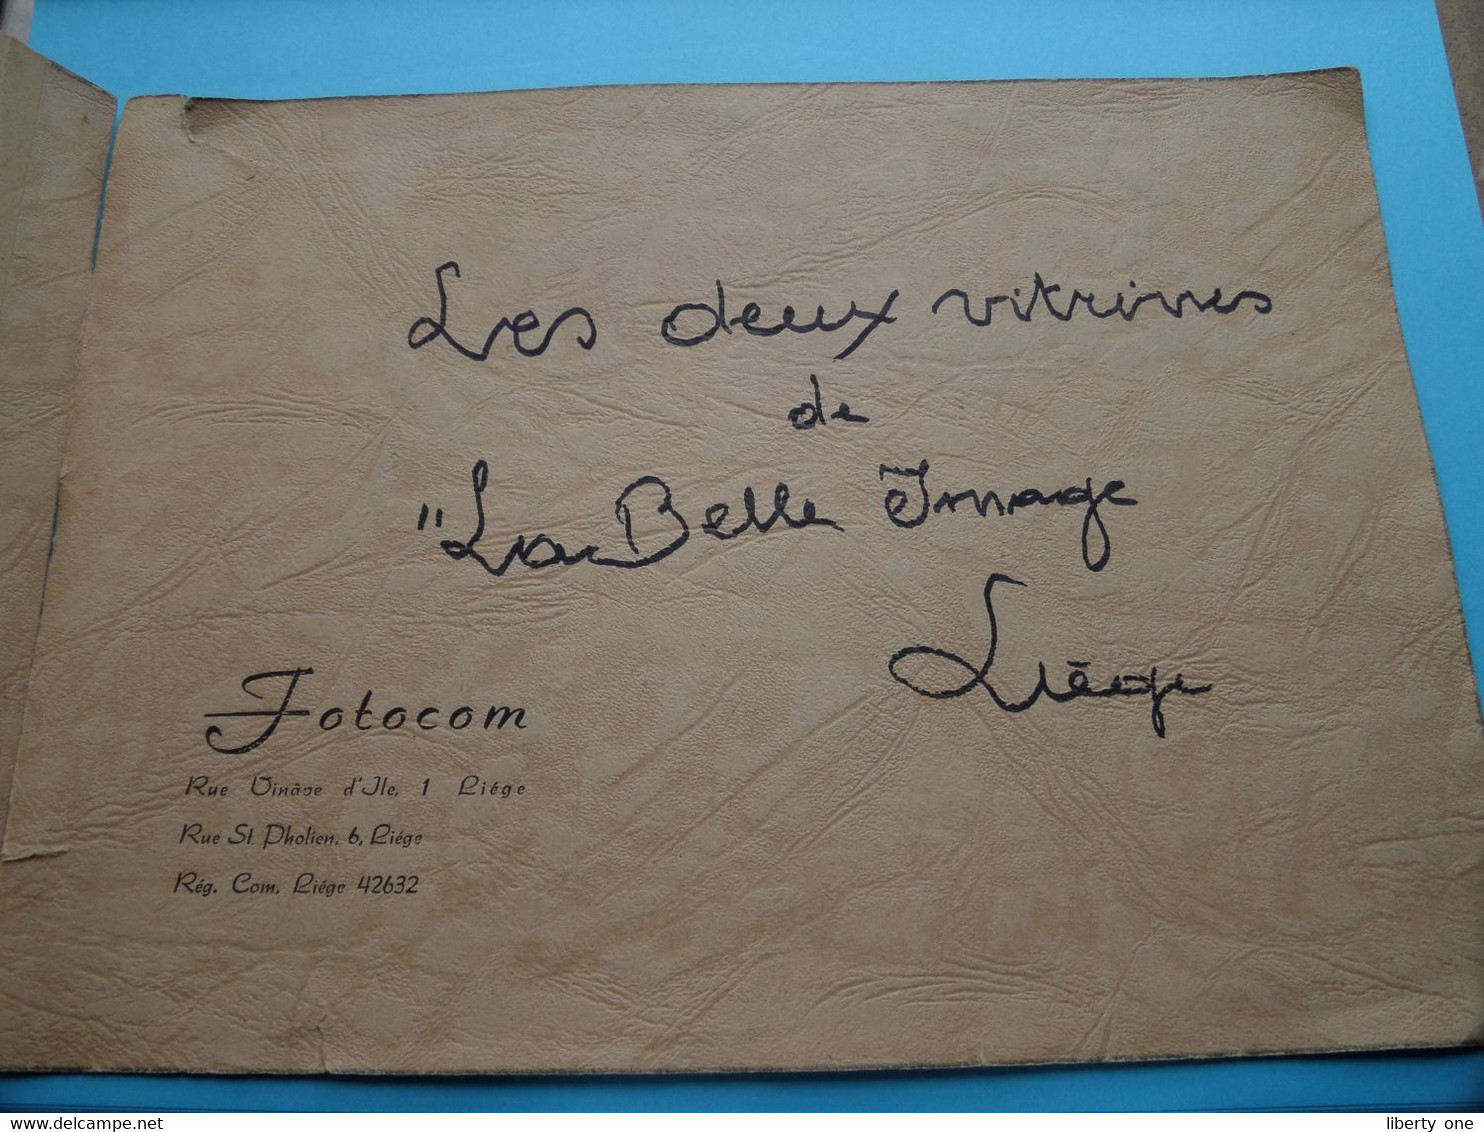 Les deux vitrines
de
"La Belle Image
Liége
Fotocom
Rue Vinâve d'Ile, 1 Liége
Rue St. Pholien, 6, Liége
Rég. Com. Liége 42632
delcampe.net
liberty one